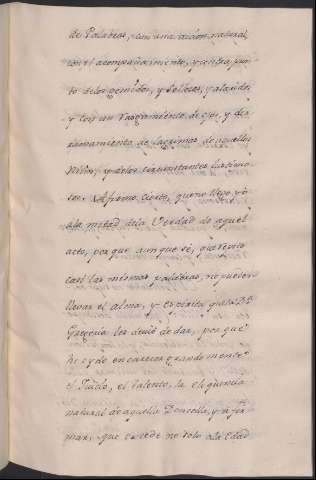 de Palabras, con una accion natural
con el acompañamiento, y contra pun-
to de los gemidos, y sollozos, y alaridos
y con un de ojos, y der-
ramamiento de lagrimas de aquellos
Niños, y de los circunstantes lastimo-
sos. Afirmo cierto, que no llego yo
a la mitad dela Verdad de aquel
acto, porque aunque sé, que repito
casi las mismas palabras, no puedo
llevar el alma, y espiritu que D.ª
Gregoria les devió de dar, porque
he oydo encarecer grandemente
el Juicio, el talento, la eloquencia
natural de aquella Doncella, y afir-
mar, que excede no solo ala edad